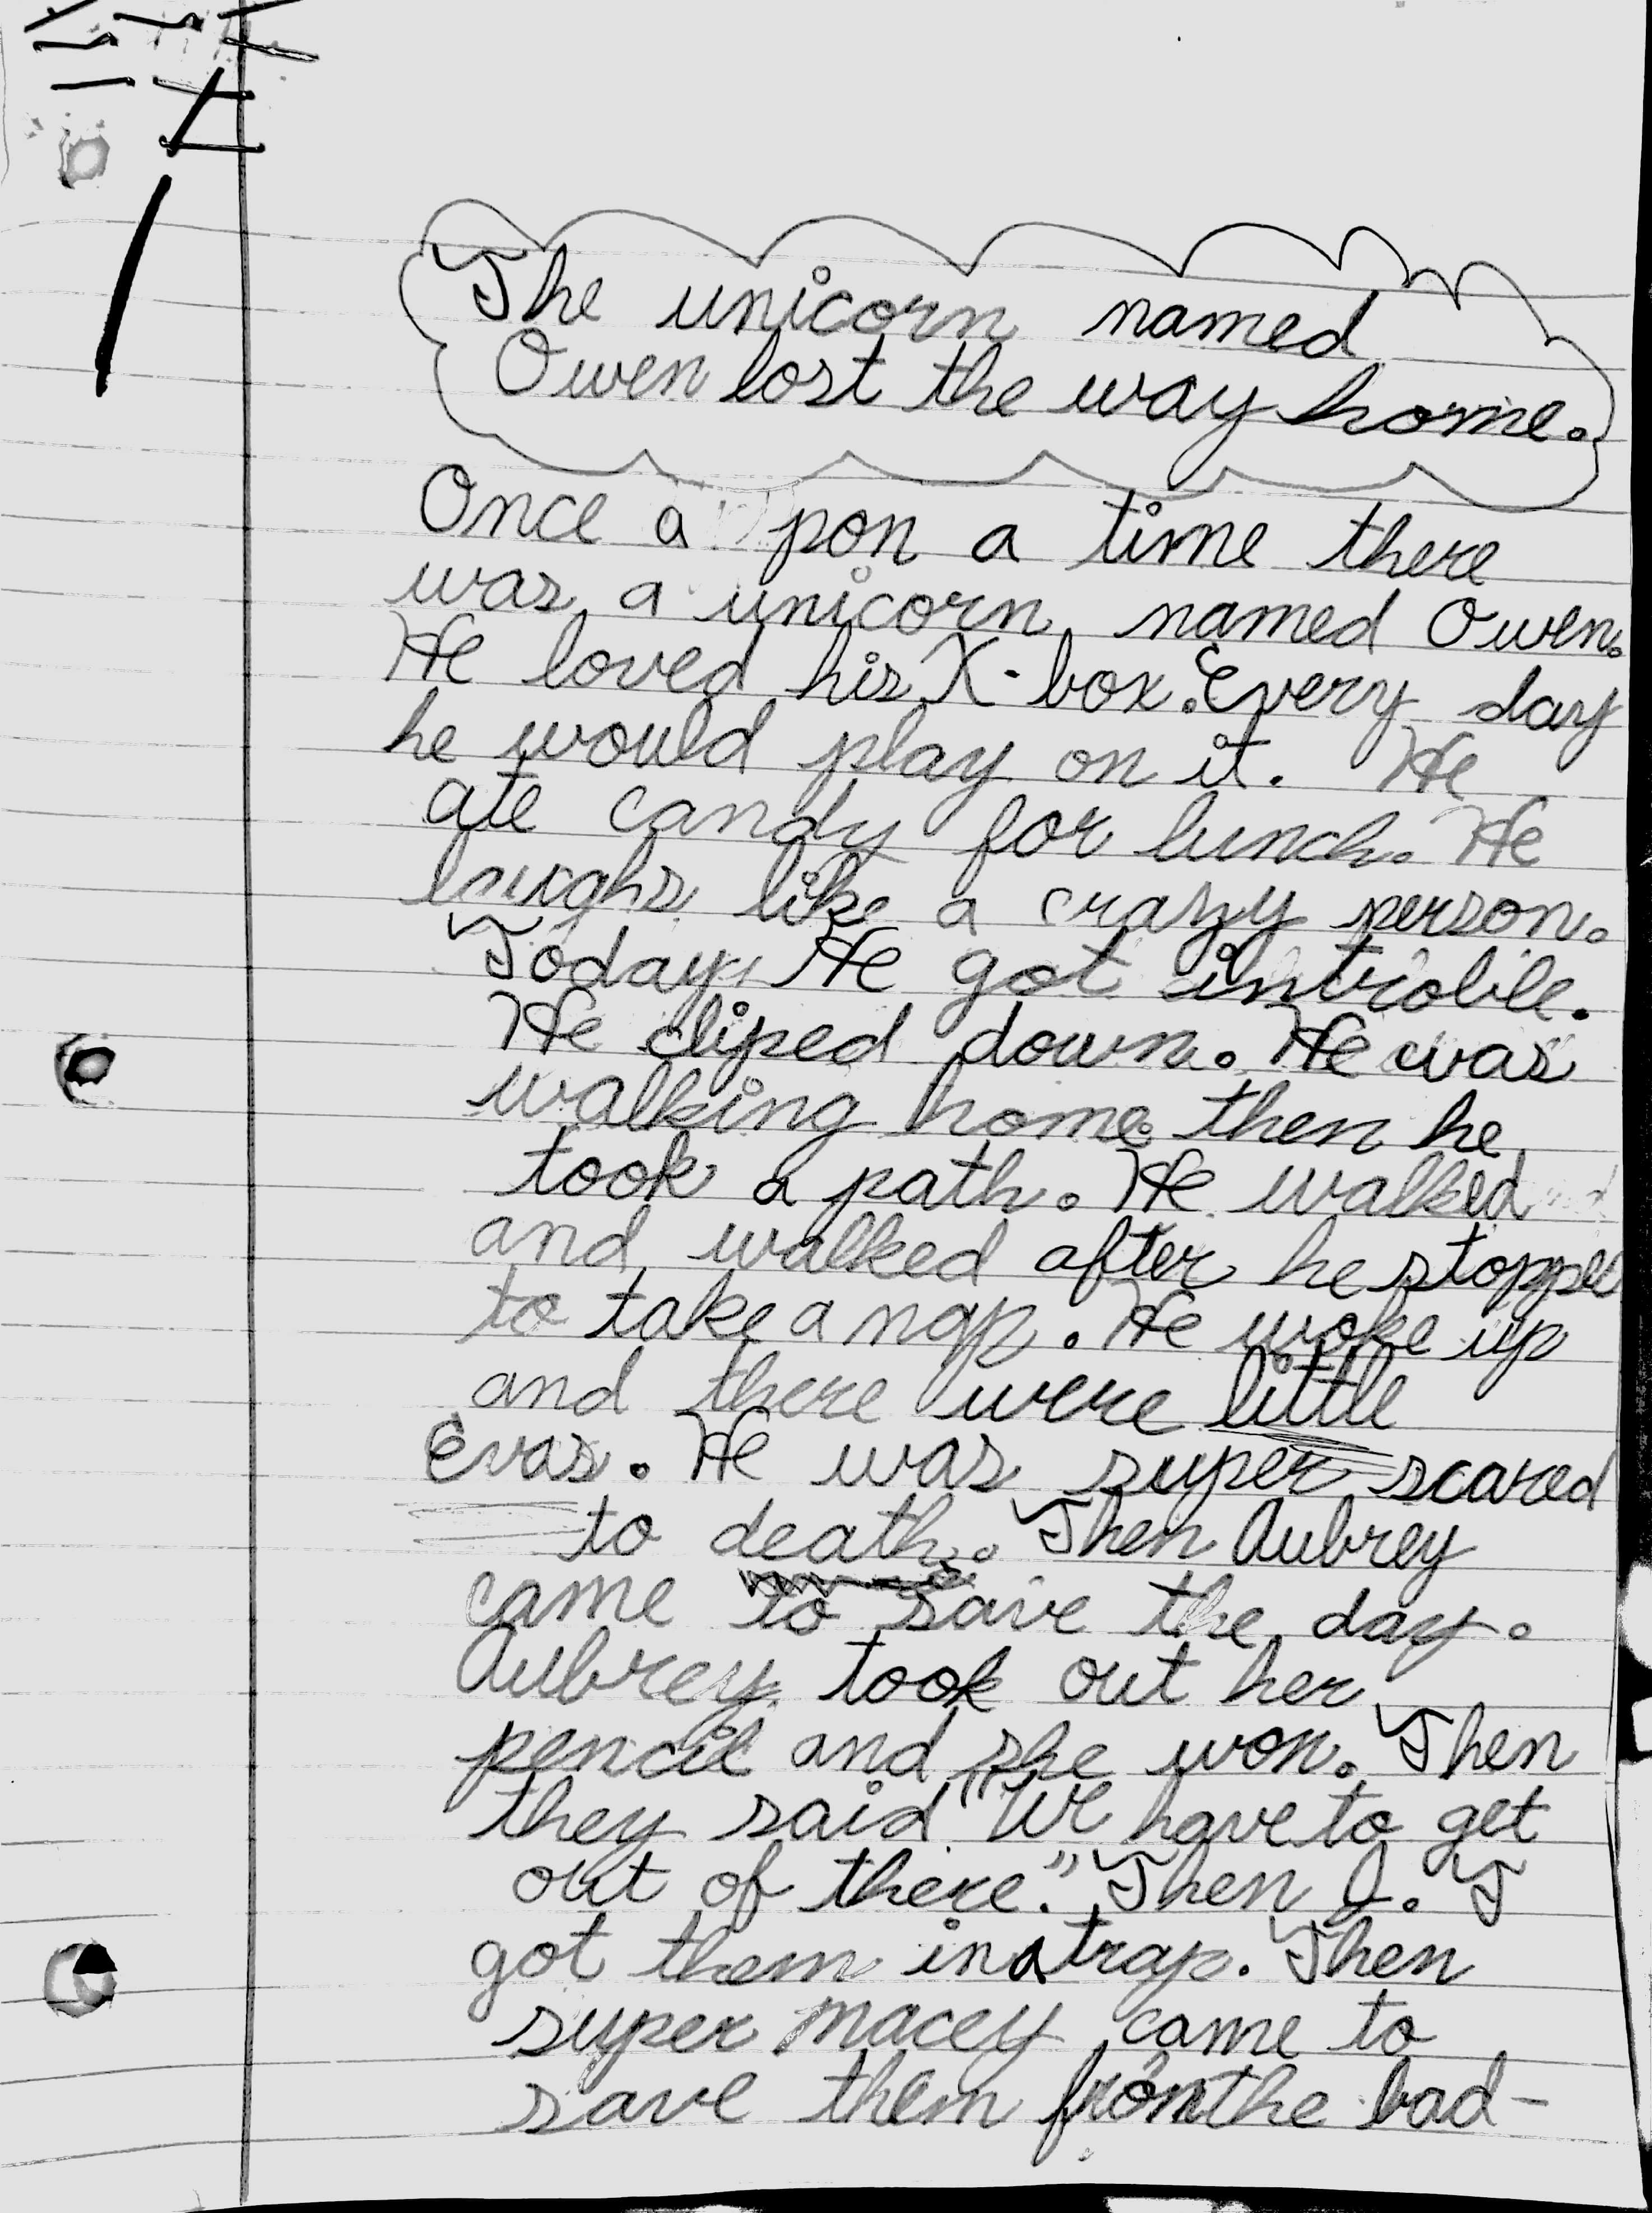 The unicorn named
Owen lost the way home.
Once a pon a time there
was a unicorn named Owen.
He loved his X-box. Every day
he would play on it. He
ate candy for lunch. He
laughs like a crazy person.
Today, He got introble.
He cliped down. He was
walking home. then he
took a path. He walked
and walked after he stopped
to take a nap. He woke up
and there were little
Evas. He was super scared
to death. Then Aubrey
came to save the day.
Aubrey took out her
pencil and she won. Then
they said "We have to get
out of there." Then J. T
got them in a trap. Then
super macey came to
save them from the bad-